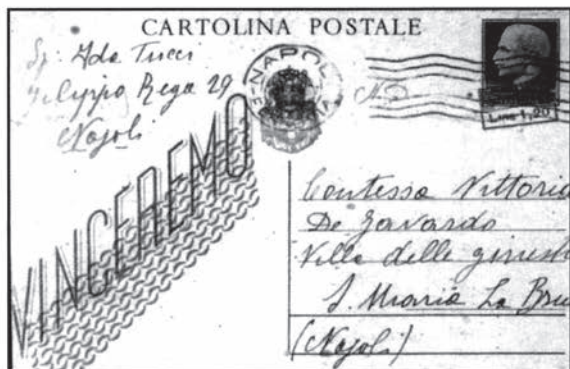 CARTOLINA POSTALE
Sp: Ada Tucci
Filippo Rega 29
Napoli
NAPOLI
Lire 1,20
VINCEREMO
Contessa Vittoria
De Zavardo
Villa delle ginest
S. Maria La Bru
(Napoli)